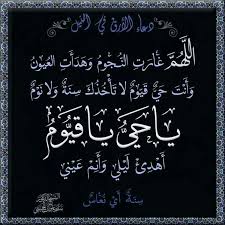 دعاء الأرق في الليل
اللَّهُمَّ غَارَتِ النُّجُومُ وَهَدَأَتِ العُيُونُ
وَأَنْتَ حَيٌّ قَيُّومٌ لَا تَأْخُذُكَ سِنَةٌ وَلَا نَوْمٌ
يَا حَيُّ يَا قَيُّومُ
أَهْدِئْ لَيْلِي وَأَنِمْ عَيْنِي
سِنَةٌ أَيْ نُعَاسٌ